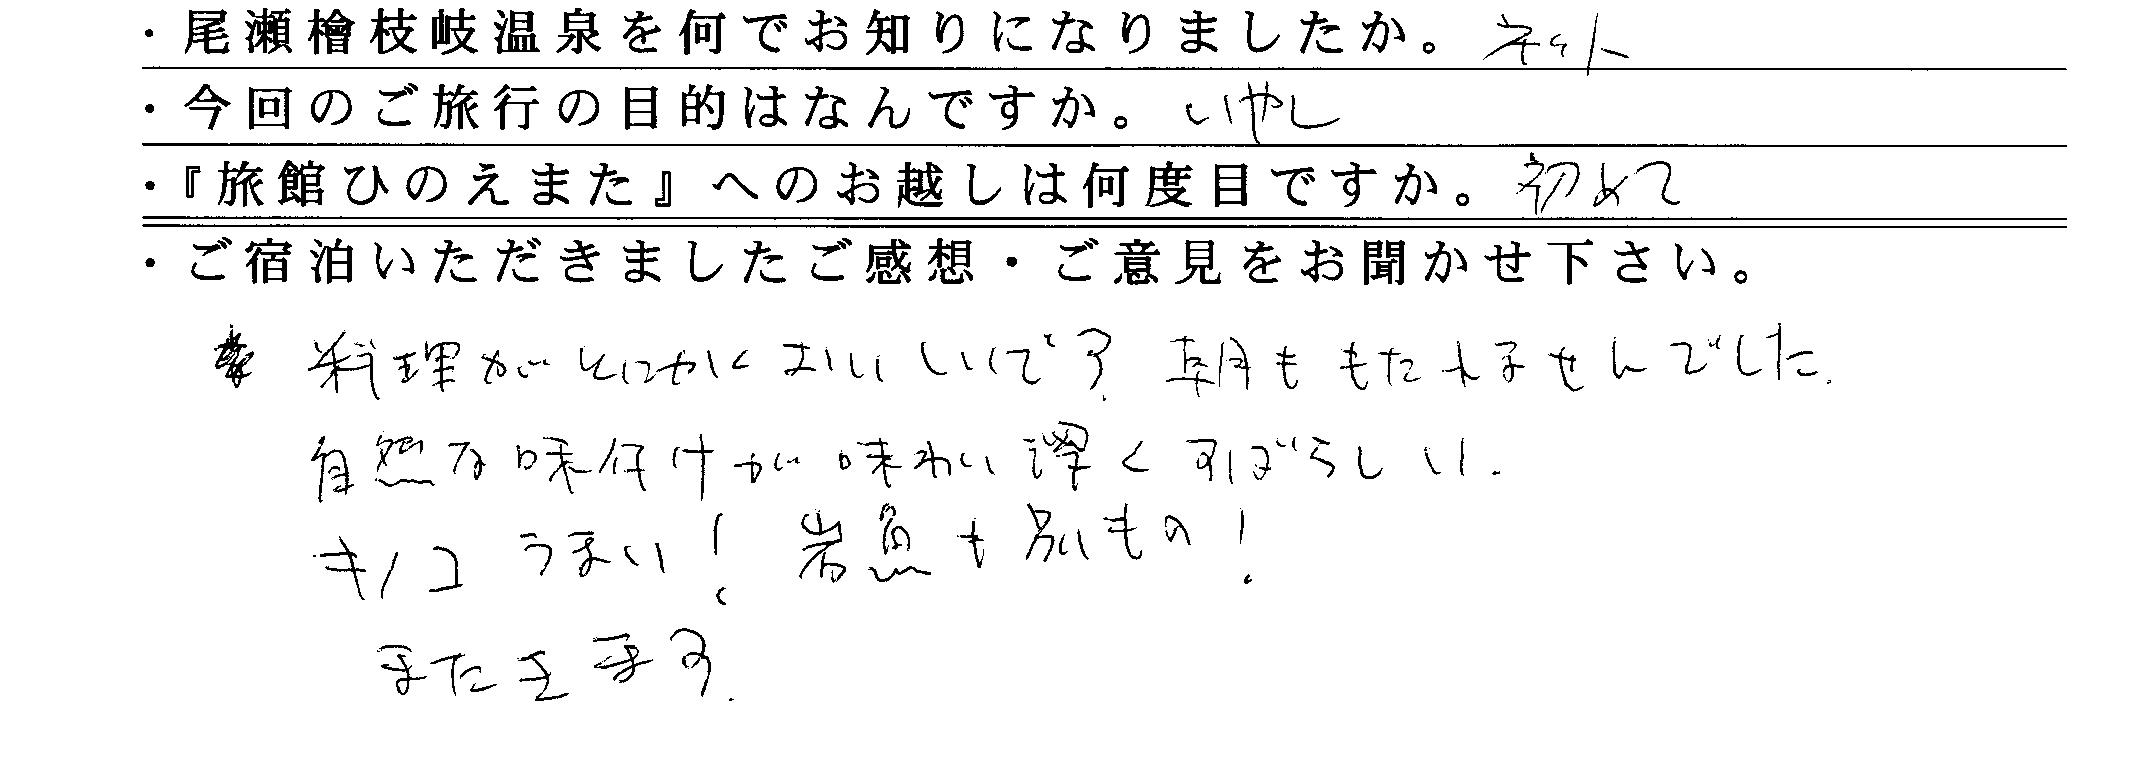 ・尾瀬檜枝岐温泉を何でお知りになりましたか。ネット
・今回のご旅行の目的はなんですか。いやし
・『旅館ひのえまた』へのお越しは何度目ですか。初めて
・ご宿泊いただきましたご感想・ご意見をお聞かせ下さい。
料理がとにかくおいしいです。朝ももたれませんでした。
自然な味付けが味わい深くすばらしい。
キノコうまい！岩魚も別もの！
またきます。